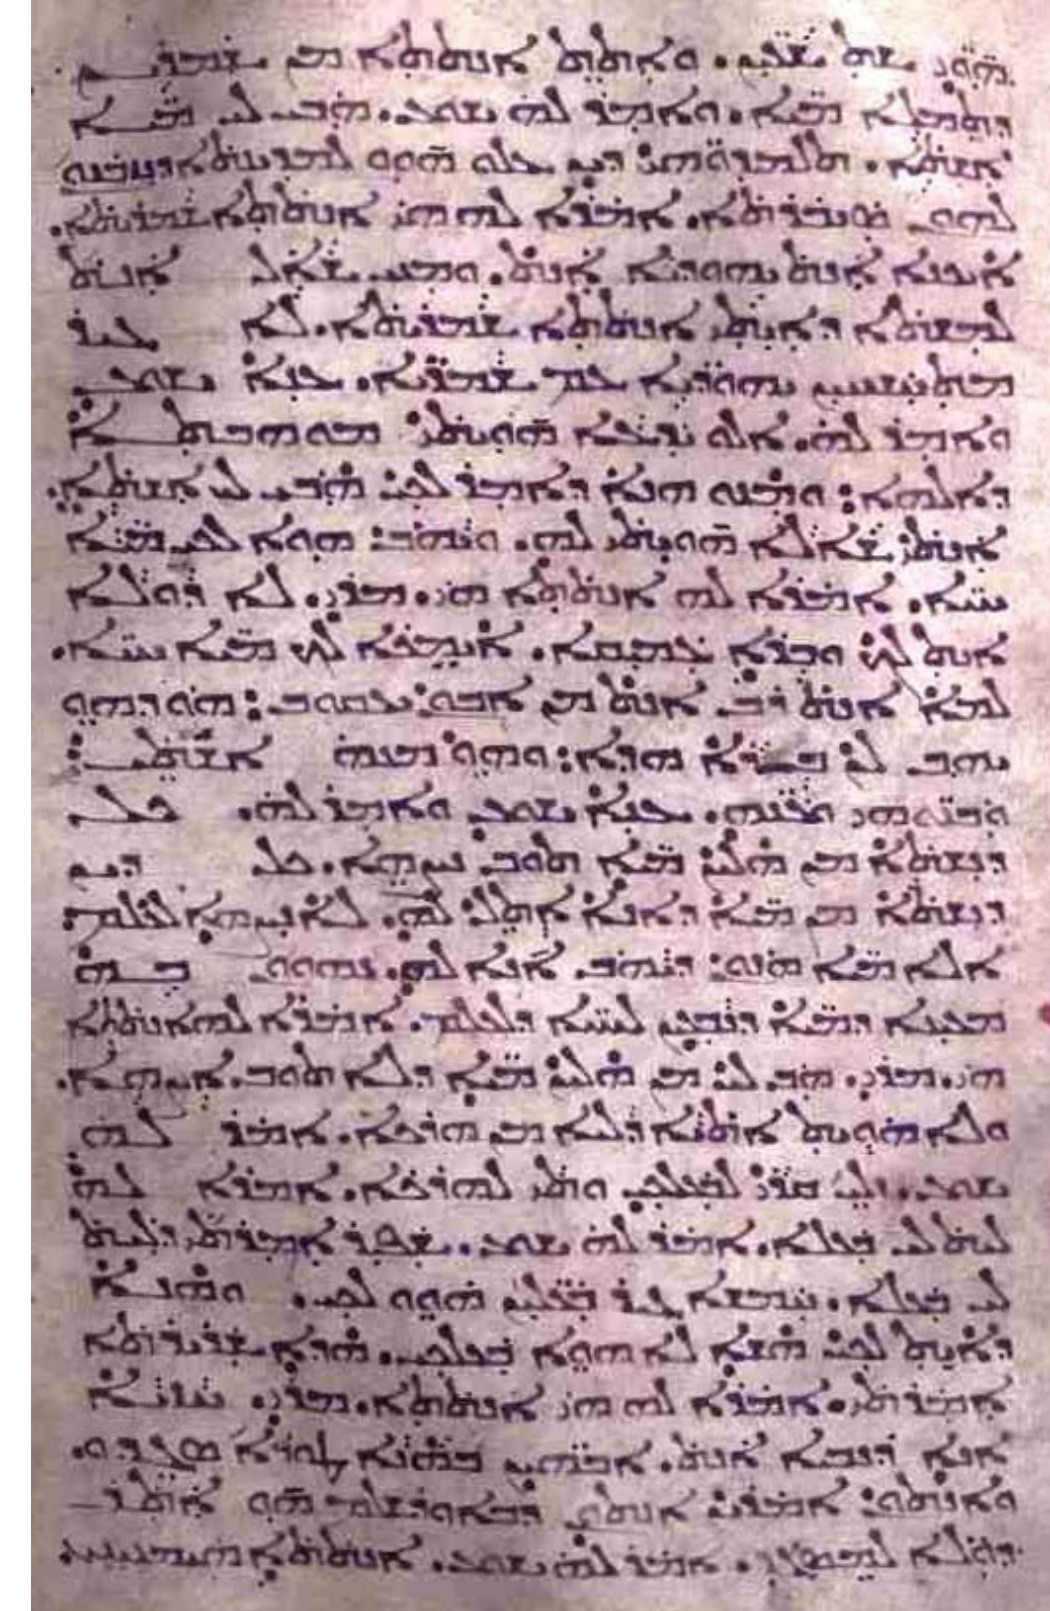 ܗܘܝ̈ ܫܬ ܫܥܝ̈ܢ. ܘܐܬܬ ܐܢܬܬܐ ܡܢ ܫܡܪܝܢ
ܕܬܡܠܐ ܡܝ̈ܐ. ܘܐܡܪ ܠܗ ܝܫܘܥ. ܗܒ ܠܝ ܡܝ̈ܐ
ܐܫܬܐ. ܬܠܡܝܕܘ̈ܗܝ ܕܝܢ ܥܠܘ ܗܘܘ ܠܡܕܝܢܬܐ ܕܢܙܒܢܘܢ
ܠܗܘܢ ܣܝܒܪܬܐ. ܐܡܪܐ ܠܗ ܗܝ ܐܢܬܬܐ ܫܡܪܝܬܐ.
ܐܝܟܢܐ ܐܢܬ ܝܗܘܕܝܐ ܐܢܬ. ܘܡܢܝ ܫܐܠ ܐܢܬ
ܠܡܫܬܐ ܕܐܝܬܝ ܐܢܬܬܐ ܫܡܪܝܬܐ. ܠܐ ܓܝܪ
ܡܬܚܫܚܝܢ ܝܗܘܕ̈ܝܐ ܥܡ ܫܡܪ̈ܝܐ. ܥܢܐ ܝܫܘܥ
ܘܐܡܪ ܠܗ. ܐܠܘ ܝܕܥܐ ܗܘܝܬܝ ܡܘܗܒܬܐ
ܕܐܠܗܐ: ܘܡܢܘ ܗܢܐ ܕܐܡܪ ܠܟܝ ܗܒ ܠܝ ܐܫܬܐ.
ܐܢܬܝ ܫܐܠܐ ܗܘܝܬܝ ܠܗ. ܘܝܗܒ ܗܘܐ ܠܟܝ ܡܝ̈ܐ
ܚܝ̈ܐ. ܐܡܪܐ ܠܗ ܐܢܬܬܐ ܗܝ. ܡܪܝ. ܠܐ ܕܘܠܐ
ܐܝܬ ܠܟ ܘܒܪܐ ܥܡܝܩܐ. ܐܝܡܟܐ ܠܟ ܡܝ̈ܐ ܚܝ̈ܐ.
ܠܡܐ ܐܢܬ ܪܒ ܐܢܬ ܡܢ ܐܒܘܢ ܝܥܩܘܒ: ܗܘ ܕܗܘ
ܝܗܒ ܠܢ ܒܐܪܐ ܗܕܐ: ܘܗܘ ܡܢܗ ܐܫܬܝ:
ܘܒܢܘ̈ܗܝ ܘܥܢܗ. ܥܢܐ ܝܫܘܥ ܘܐܡܪ ܠܗ. ܟܠ
ܕܢܫܬܐ ܡܢ ܗܠܝܢ ܡܝ̈ܐ ܬܘܒ ܢܨܗܐ. ܟܠ ܕܝܢ
ܕܢܫܬܐ ܡܢ ܡܝ̈ܐ ܕܐܢܐ ܐܬܠ ܠܗ. ܠܐ ܢܨܗܐ ܠܥܠܡ:
ܐܠܐ ܡܝ̈ܐ ܗܢܘܢ ܕܝܗܒ ܐܢܐ ܠܗ. ܢܗܘܘܢ ܒܗ
ܡܥܝܢܐ ܕܡܝ̈ܐ ܕܢܒܥܝܢ ܠܚܝ̈ܐ ܕܠܥܠܡ. ܐܡܪܐ ܠܗ ܐܢܬܬܐ
ܗܝ. ܡܪܝ. ܗܒ ܠܝ ܡܢ ܗܠܝܢ ܡܝ̈ܐ ܕܠܐ ܬܘܒ ܐܨܗܐ.
ܘܠܐ ܗܘܝܬ ܐܬܝܐ ܕܠܝܐ ܡܢ ܗܪܟܐ. ܐܡܪ ܠܗ
ܝܫܘܥ. ܙܠܝ ܩܪܝ ܠܒܥܠܟܝ ܘܬܝ ܠܗܪܟܐ. ܐܡܪܐ ܠܗ
ܠܝܬ ܠܝ ܒܥܠܐ. ܐܡܪ ܠܗ ܝܫܘܥ. ܫܦܝܪ ܐܡܪܬܝ ܕܠܝܬ
ܠܝ ܒܥܠܐ. ܚܡܫܐ ܓܝܪ ܒܥܠܝ̈ܢ ܗܘܘ ܠܟܝ. ܘܗܢܐ
ܕܐܝܬ ܠܟܝ ܗܫܐ ܠܐ ܗܘܐ ܒܥܠܟܝ. ܗܕܐ ܫܪܝܪܬܐ
ܐܡܪܬܝ. ܐܡܪܐ ܠܗ ܗܝ ܐܢܬܬܐ. ܡܪܝ. ܚܙܝܐ
ܐܢܐ ܕܢܒܝܐ ܐܢܬ. ܐܒܗ̈ܝܢ ܒܗܢܐ ܛܘܪܐ ܣܓܕܘ.
ܘܐܢܬܘܢ ܐܡܪܝܢ ܐܢܬܘܢ ܕܒܐܘܪܫܠܡ ܗܘ ܐܬܪ
ܕܘܠܐ ܠܡܣܓܕ. ܐܡܪ ܠܗ ܝܫܘܥ. ܐܢܬܬܐ ܗܝܡܢܝܢܝ